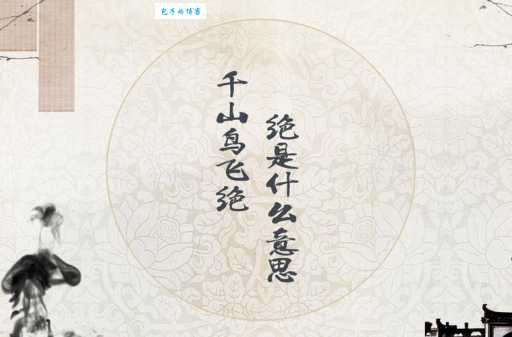 包子的博客
千山鸟飞绝
绝是什么意思